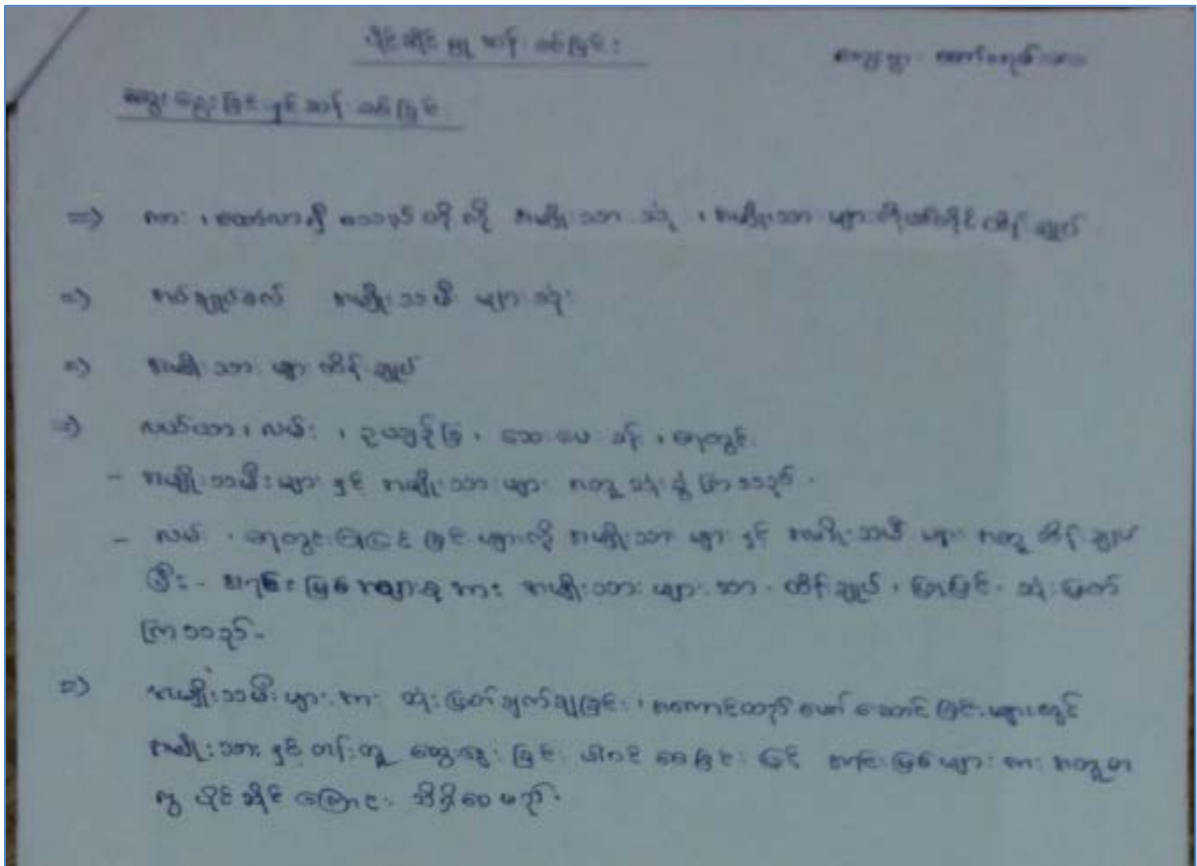 ပိုင်ဆိုင်မှု ဆန်းစစ်ခြင်း
ကျေးရွာ -
ဆွေးနွေးခြင်းနှင့် ဆန်းစစ်ခြင်း
=> ကား ၊ ထော်လာဂျီ စသည်တို့ကို အမျိုးသား သုံး ၊ အမျိုးသား များကိုယ်တိုင်ထိန်းချုပ်
=> အမျိုးသမီး များ သုံး
=> အမျိုးသား များ ထိန်းချုပ်
=> လယ်ယာ ၊ လမ်း ၊ ဥယျာဉ်ခြံ ၊ ဆေးပေးခန်း ၊ ရေတွင်း
- အမျိုးသမီးများ နှင့် အမျိုးသားများ အတူ သုံးစွဲကြသည်။
- လမ်း ၊ ရေတွင်းပြုပြင်ခြင်းများကို အမျိုးသား များ နှင့် အမျိုးသမီး များ အတူ ထိန်းချုပ်
ပြီး - အရင်းမြစ်အများစုအား အမျိုးသား များသာ ထိန်းချုပ် ၊ ပြုပြင် ၊ ဆုံးဖြတ်
ကြသည်။
=> အမျိုးသမီးများအား ဆုံးဖြတ်ချက်ချခြင်း ၊ အကောင်အထည်ဖော်ဆောင်ခြင်းများတွင်
အမျိုးသား နှင့် တန်းတူ ဆွေးနွေးခြင်း ပါဝင်စေခြင်းဖြင့် အရင်းမြစ်များအား အတူတ
ကွ ပိုင်ဆိုင်ကြောင်း သိရှိစေမည်။